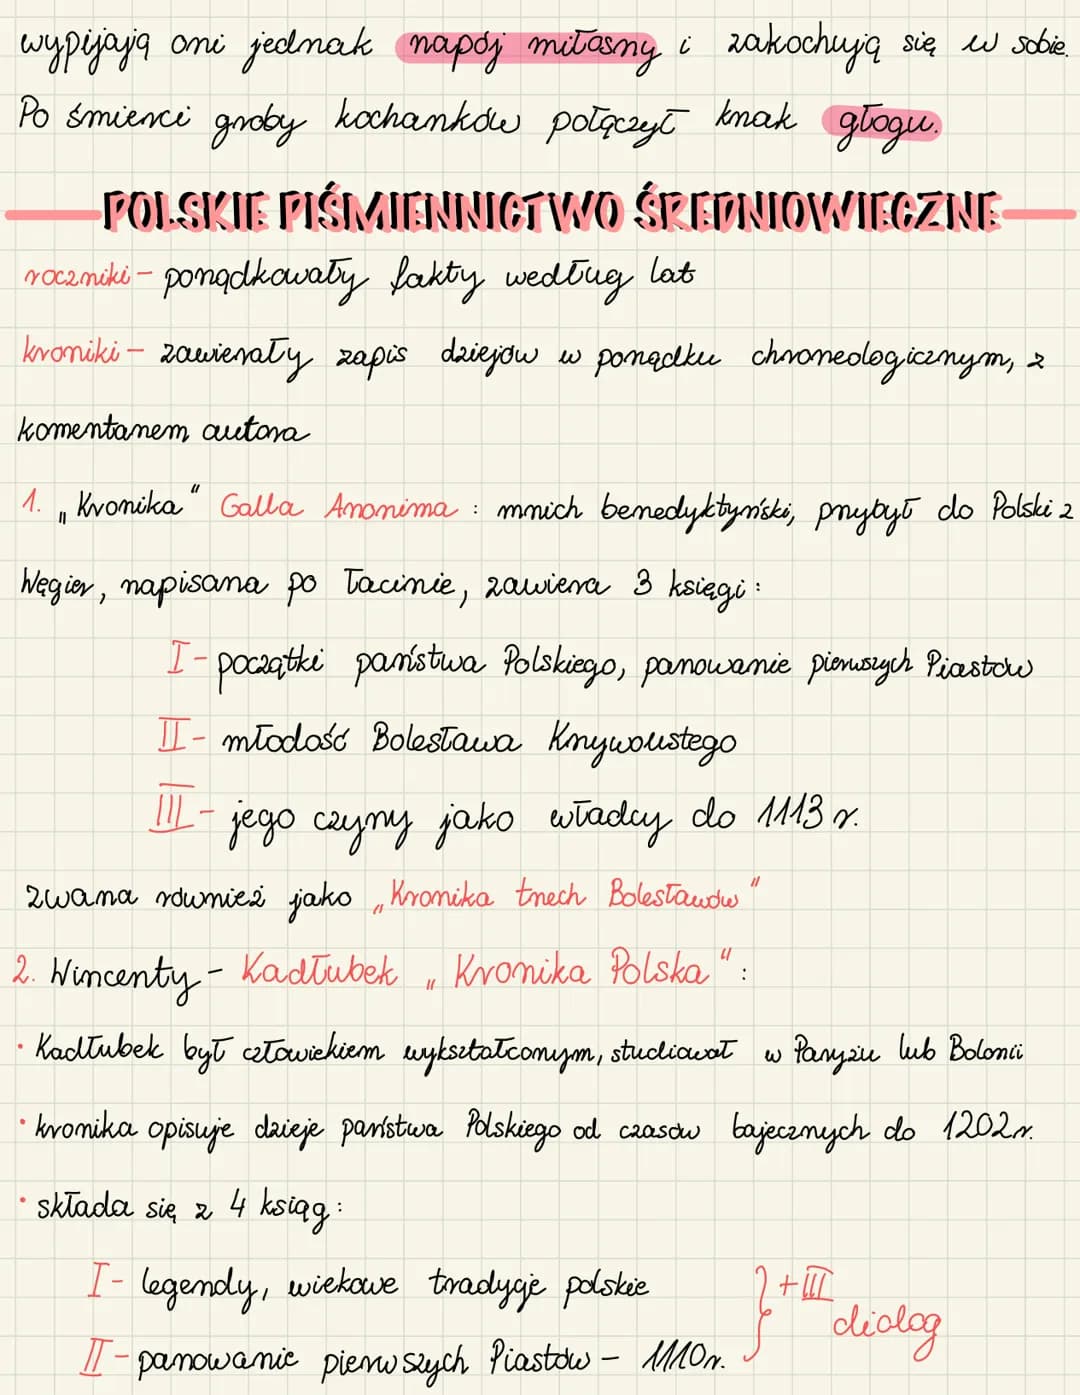 wypijają oni jednak napój miłosny i zakochują się w sobie.
Po śmierci groby kochanków połączył krzak głogu.
POLSKIE PIŚMIENNICTWO ŚREDNIOWIECZNE
roczniki - porządkowały fakty według lat
kroniki - zawierały zapis dziejów w porządku chroneologicznym, z
komentarzem autora
1. „Kronika" Galla Anonima : mnich benedyktyński, przybył do Polski z
Węgier, napisana po łacinie, zawiera 3 księgi:
I - początki państwa Polskiego, panowanie pierwszych Piastów
II - młodość Bolesława Krzywoustego
III - jego czyny jako władcy do 1113 r.
zwana również jako „Kronika trzech Bolesławów"
2. Wincenty - Kadłubek „Kronika Polska":
· Kadłubek był człowiekiem wykształconym, studiował w Paryżu lub Bolonii
· kronika opisuje dzieje państwa Polskiego od czasów bajecznych do 1202r.
· składa się z 4 ksiąg:
I - legendy, wiekowe tradycje polskie
II - panowanie pierwszych Piastów - 1110r.
} + III dialog